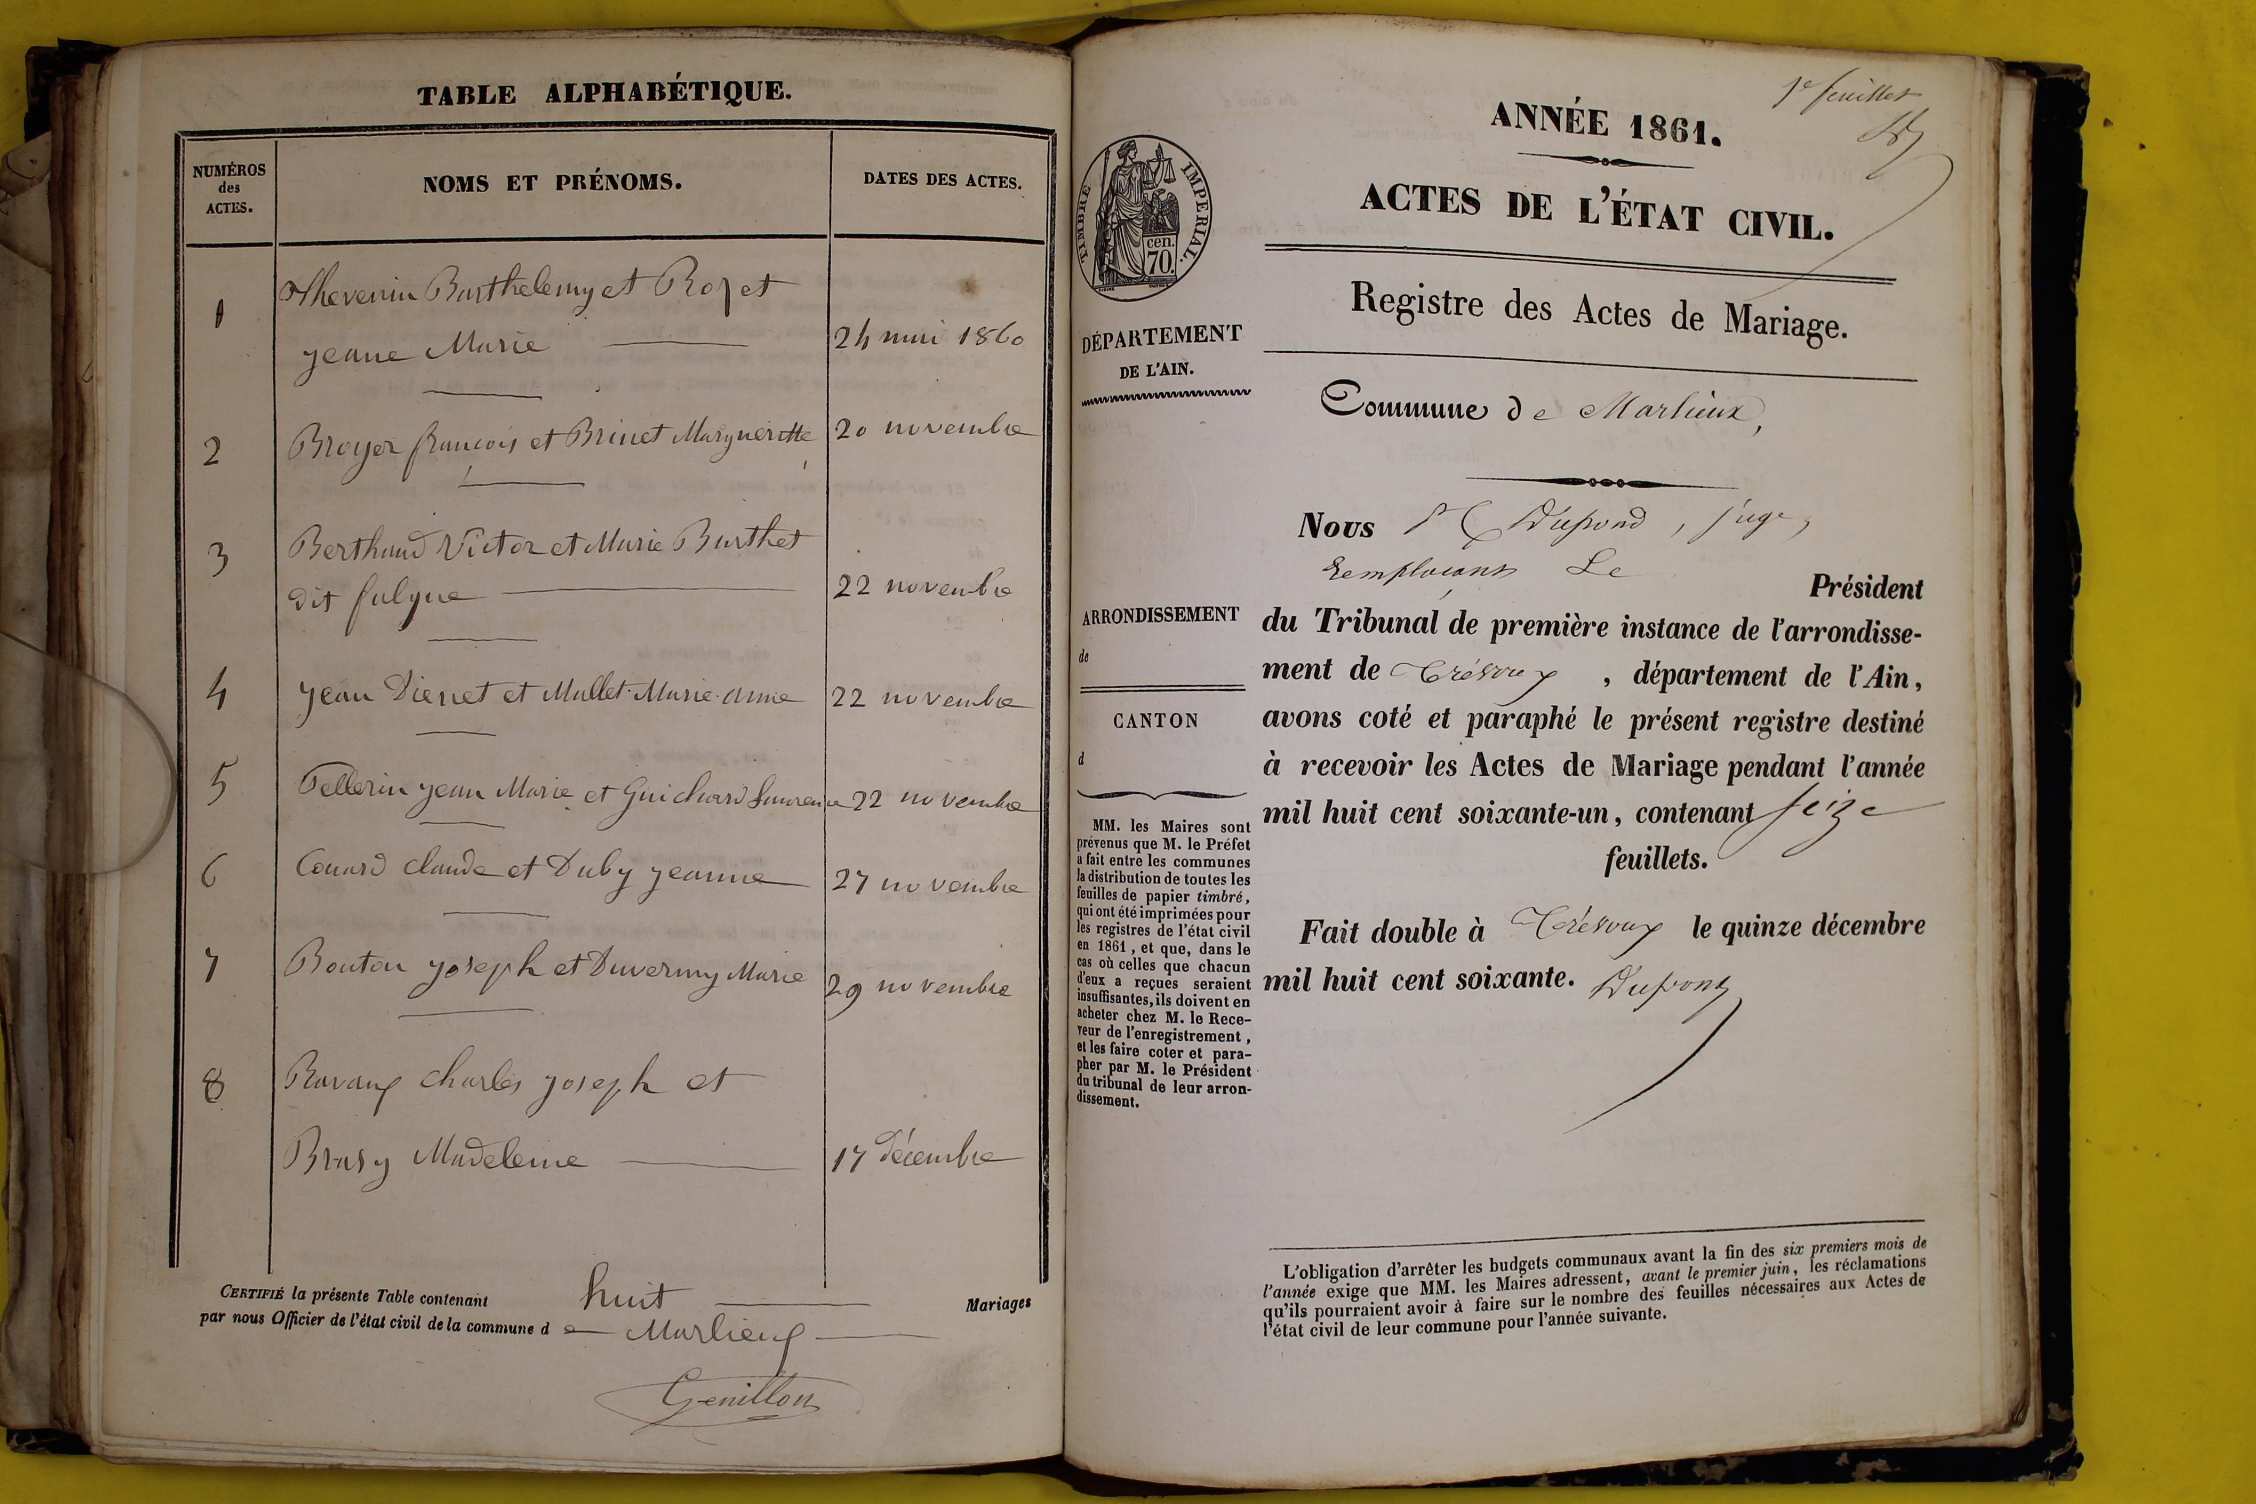 TABLE ALPHABÉTIQUE.
NUMÉROS
des
ACTES.
NOMS ET PRÉNOMS.
DATES DES ACTES.
1
Thevenin Barthelemy et Rozet
jeane Marie
24 mai 1860
2
Broyer françois et Brinet Margueritte
20 novembre
3
Berthaud Victor et Marie Burthet
dit fulgue
22 novembre
4
jean Dienet et Mallet Marie anne
22 novembre
5
Pellerin jean Marie et Guichard Laurence
22 novembre
6
Couard claude et Duby jeanne
27 novembre
7
Bouton joseph et Duvernay Marie
29 novembre
8
Ravaux charles joseph et
Brasy Madeleine
17 décembre
CERTIFIÉ la présente Table contenant huit Mariages
par nous Officier de l'état civil de la commune de Marlieux
Genillon
1e feuillet
ANNÉE 1861.
ACTES DE L'ÉTAT CIVIL.
TIMBRE IMPERIAL.
cen.
70.
Registre des Actes de Mariage.
DÉPARTEMENT
DE L'AIN.
Commune de Marlieux,
ARRONDISSEMENT
de
CANTON
d
MM. les Maires sont
prévenus que M. le Préfet
a fait entre les communes
la distribution de toutes les
feuilles de papier timbré,
qui ont été imprimées pour
les registres de l'état civil
en 1861, et que, dans le
cas où celles que chacun
d'eux a reçues seraient
insuffisantes, ils doivent en
acheter chez M. le Rece-
veur de l'enregistrement,
et les faire coter et para-
pher par M. le Président
du tribunal de leur arron-
dissement.
Nous Dupond, juge,
remplaçant Le
Président
du Tribunal de première instance de l'arrondisse-
ment de Trévoux, département de l'Ain,
avons coté et paraphé le présent registre destiné
à recevoir les Actes de Mariage pendant l'année
mil huit cent soixante-un, contenant seize
feuillets.
Fait double à Trévoux le quinze décembre
mil huit cent soixante. Dupond
L'obligation d'arrêter les budgets communaux avant la fin des six premiers mois de
l'année exige que MM. les Maires adressent, avant le premier juin, les réclamations
qu'ils pourraient avoir à faire sur le nombre des feuilles nécessaires aux Actes de
l'état civil de leur commune pour l'année suivante.